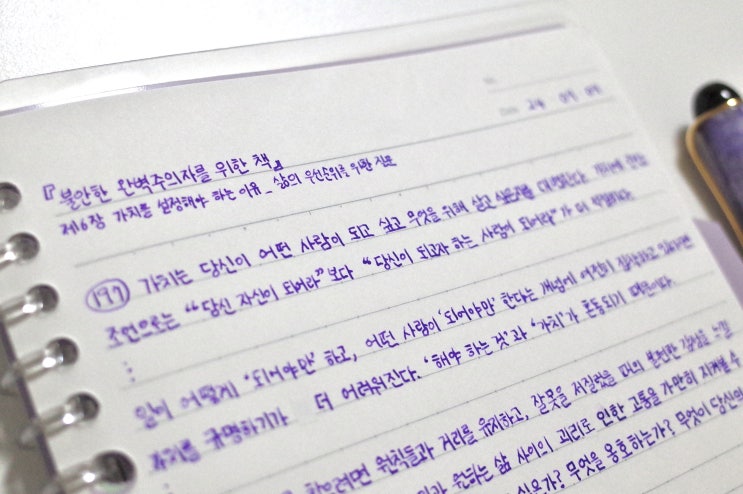 『불안한 완벽주의자를 위한 책』
제6장 가치를 설정해야 하는 이유 _ 삶의 우선순위를 위한 질문
197 가치는 당신이 어떤 사람이 되고 싶고 무엇을 위해 살고 싶은지를 대변한다.
조언으로는 “당신 자신이 되어라”보다 “당신이 되고자 하는 사람이 되어라”가 더 적절하다
⋮
일이 어떻게 ‘되어야만’ 하고, 어떤 사람이 ‘되어야만’ 한다는 개념에 여전히 집착하고 있다면
가치를 규명하기가 더 어려워진다. ‘해야 하는 것’과 ‘가치’가 혼동되기 때문이다.
⋮
찾으려면 원칙들과 거리를 유지하고, 잘못을 저질렀을 때의 불편한 감정을 느낄
원하는 삶 사이의 괴리로 인한 고통을 가만히 지켜볼 수
싶은가? 무엇을 옹호하는가? 무엇이 당신의